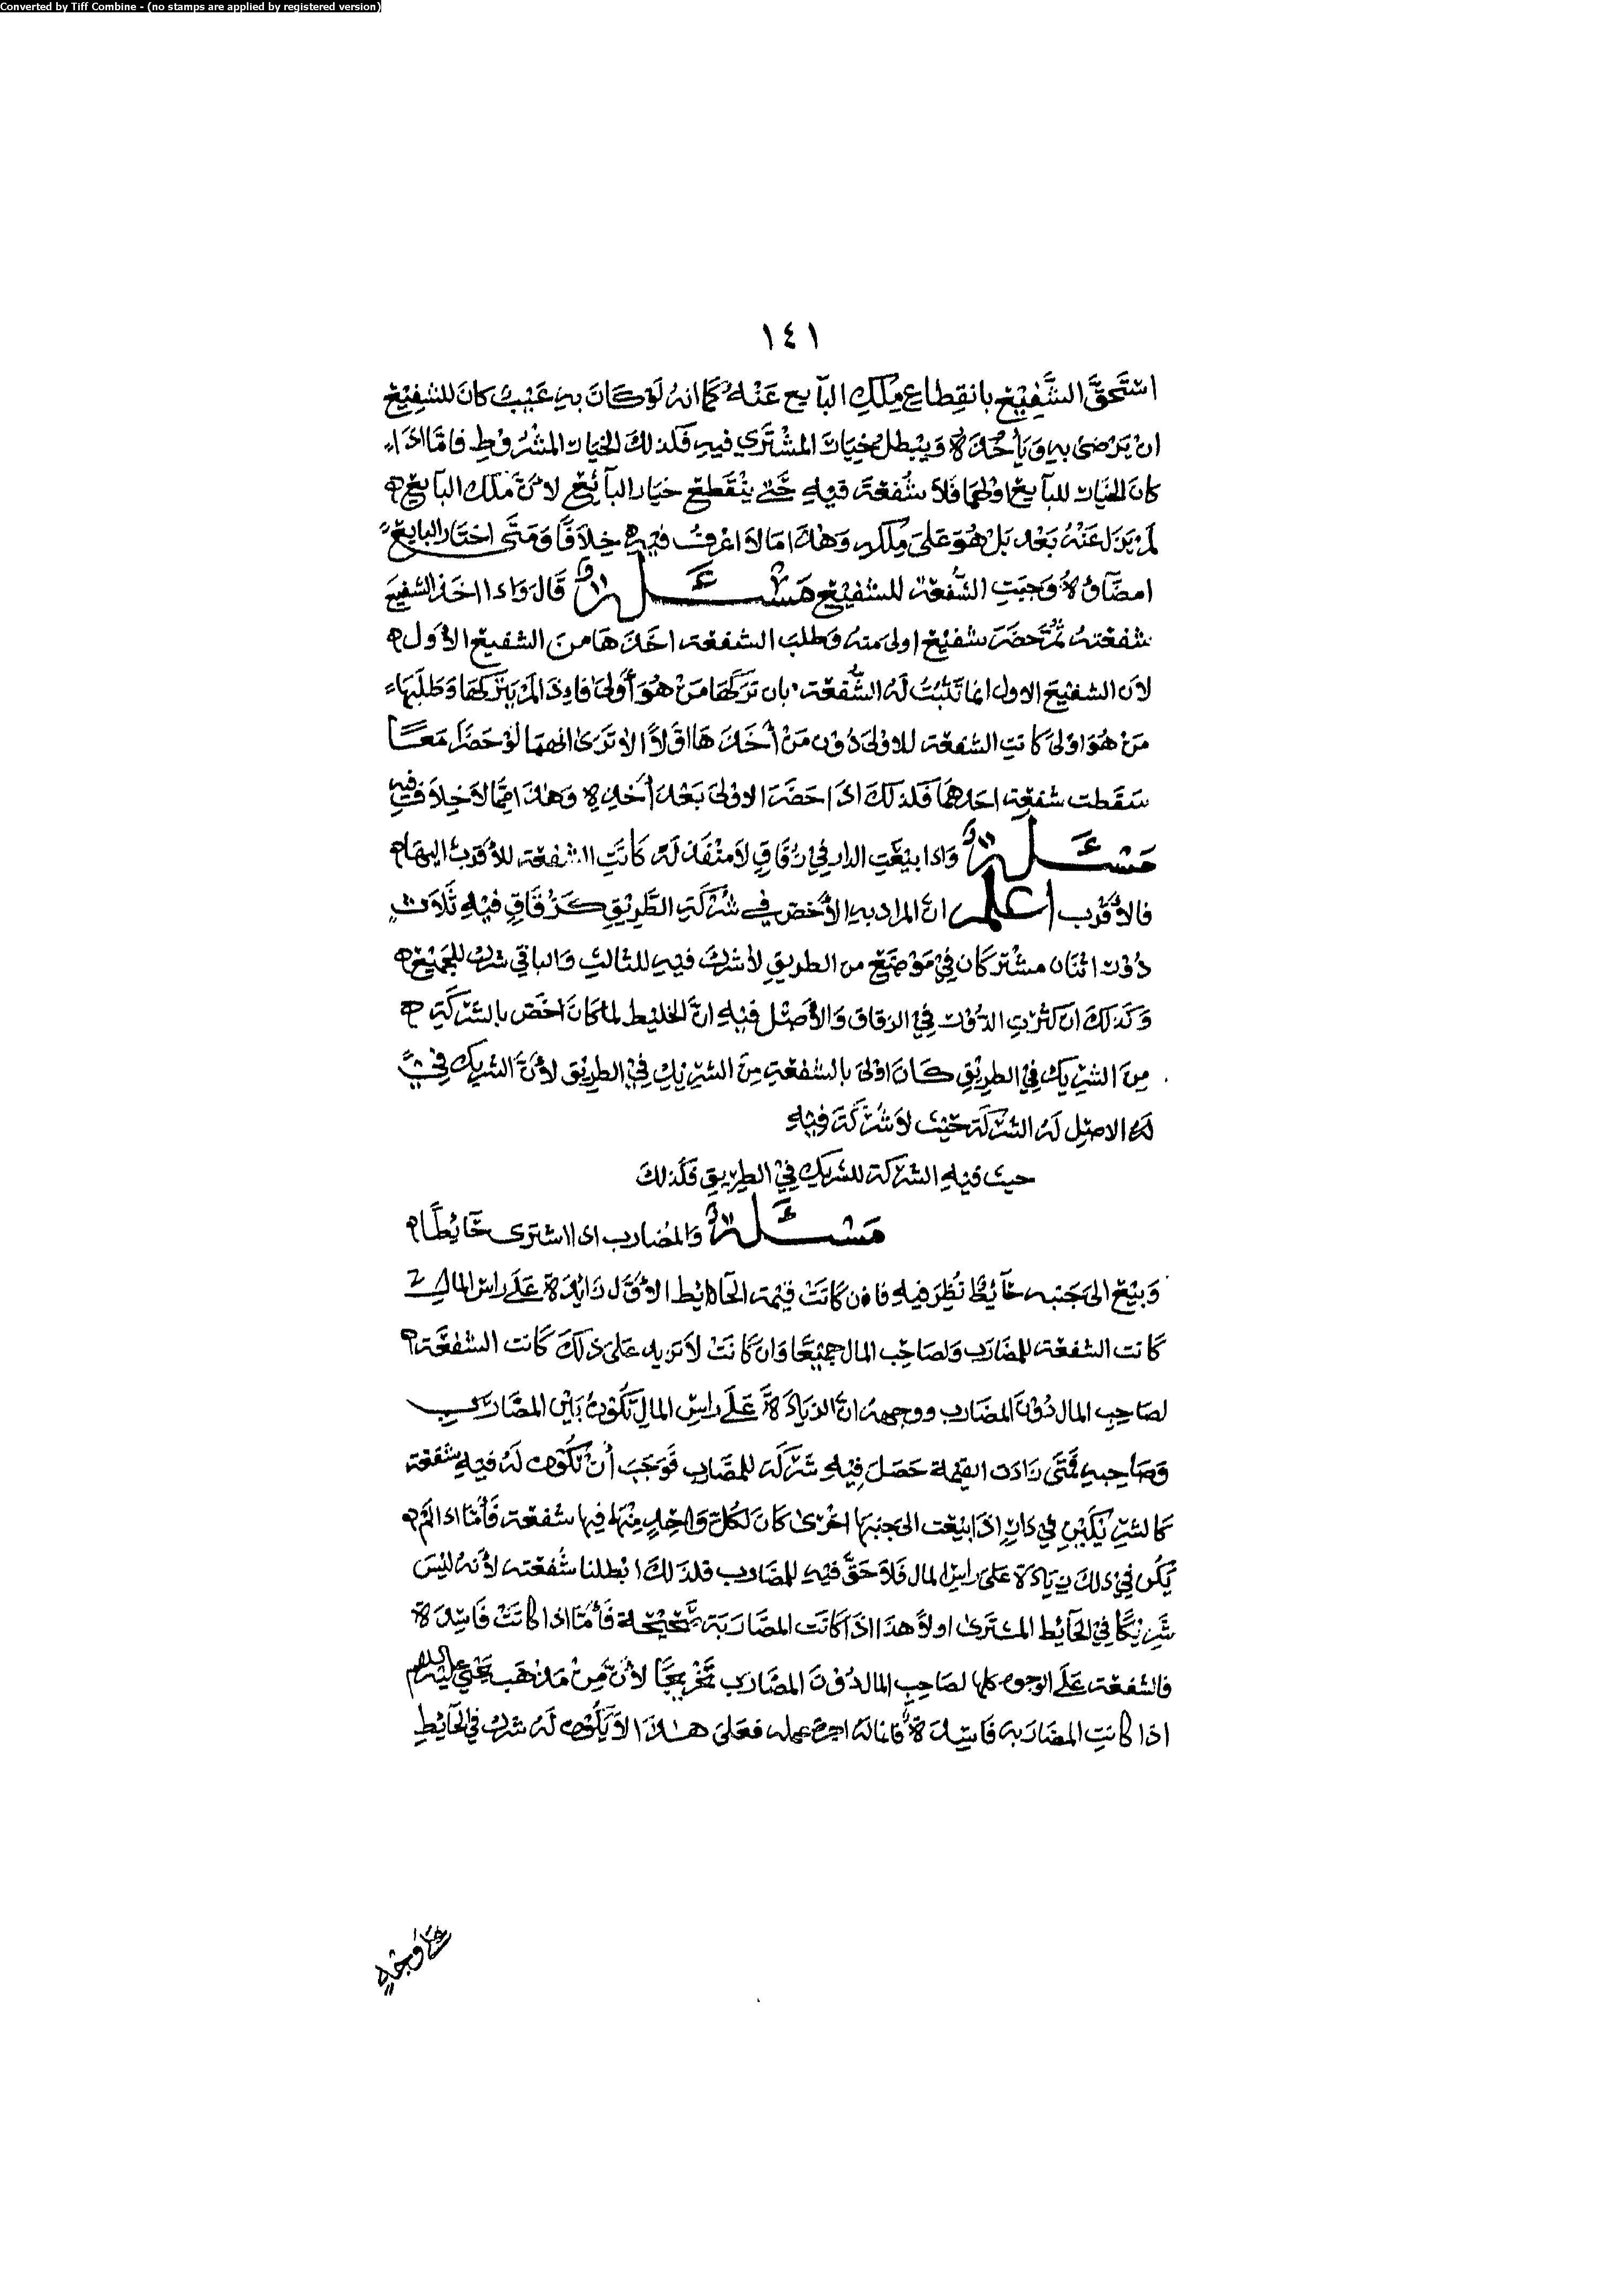 Converted by Tiff Combine - (no stamps are applied by registered version)
١٤١
استَحقَّ الشَّفِيْع بانقِطاعِ مِلكِ البآيع عَنْهُ كمَا انهُ لَوْ كَانَ بهِ عَيْبٌ كانَ للشفِيْع
ان يَرْضى بهِ وَيَأخُذَهُ وَيَبْطل خيَار المشْتَرَي فيهِ فكذلكَ الخيَار المشرُوْطِ فامَّا اذَا
كانَ الخيَار للبآيع اوْ لهمَا فَلاَ شُفعَةَ فيْهِ حَتَّى يَنْقَطِعَ خيَار البآئِع لانَّ مَلك البآيع
لمْ يزَل عَنْهُ بَعْد بَلْ هُوَ عَلىَ مِلكهِ وَهٰذَا مَا لاَ اعْرفُ فيْهِ خِلاَفًا وَمَتَى اختَارَ البايعُ
امضَآؤهُ وَجَبتِ الشُّفعَة للشفِيْع مَسْئَلة قَالَ وَاذا اخَذ الشفِيع
شفعَتهُ ثمَّ حَضَرَ شفيْع اولىَ منهُ وَطلبَ الشفعَة اخَذَهَا منَ الشفيع الأوَل
لأن الشفيْعَ الاول انما تَثبُتُ لَهُ الشُّفعَة بان تَرَكَهَا مَنْ هُوَ أَولىَ فَاِذَا لمْ يَتركهَا وَطَلبَهَا
مَنْ هُوَ اوْلىَ كانتِ الشفعَة للاوْلىَ دُوْن مَنْ أخَذَهَا اوَّلاً الا تَرَىٰ انهمَا لوْ حَضَرَا مَعًا
سَقَطت شفعَة احَدهمَا فكذلكَ اذَا حَضَرَ الاوْلىَ بَعْدَ أخذِهِ وَهٰذَا مِمَّا لاَ خِلاَفَ فيهِ
مَسْئَلة وَاذا بيْعَتِ الدار فيْ زُقَاقٍ لاَ مَنْفَذ لَهُ كانَتِ الشفعَة للأَقرَبِ اليهَا
فالأقرَب اعلم انَّ المرَاد بهِ الأخَصّ في شرْكَةِ الطَّرِيْقِ كزقَاقٍ فيْهِ ثلاَث
دُوْر اثنَان مشْتركَان في مَوْضَعٍ من الطريقِ لا شرْكَ فيهِ للثالثِ وَالباقي شركٌ للجَمِيْع
وَكذلكَ ان كثرَتِ الدُّوْر في الزقاق وَالأصْل فيْهِ انَّ الخليْط لما كانَ اخَصّ بالشرْكَةِ
مِنَ الشرِيْك فِيْ الطرِيْقِ كَانَ اوْلىَ بالشفعَةِ مِنَ الشرِيْكِ فِيْ الطريْق لأنَّ الشريْكَ في
الاصْل لَهُ الشرْكَة حَيْث لاَ شُرْكَةَ فيْهِ
حيث فيْهِ الشركَة للشريكِ فِيْ الطرِيقِ فكَذلكَ
مَسْئَلة وَالمُضَارب اذا اشترَى حَائِطًا
وَبيْعَ الىَ جَنبه حَآئِط نُظِرَ فيْهِ فَان كانَتْ قيْمَة الحَآئِط الأوَّل زَائِدَة عَلَى رَاس المالِ
كَانت الشفعَة للمضَارَب وَلصَاحِب المال جمِيْعًا وَان كانَتْ لاَ تزيد علىَ ذلكَ كَانت الشفعَة
لصَاحِب المال دُوْنَ المضَارب ووجههُ انَّ الزيَادَة عَلَى رَاسِ المالِ تكُوْنُ بَيْن المضَارَب
وَصَاحِبهِ فمَتَى زَادَت القيْمَة حَصَلَ فِيْهِ شَرْكَة للمضَارب فَوَجَبَ أنْ تكُوْنَ لَهُ فيْهِ شفعَة
كالشرِيْكَيْنِ فِيْ دَارٍ اذَا بيْعَت الى جنبهَا اخْرَىٰ كانَ لكُلِّ وَاحِدٍ مِنْهُمَا فيها شفعَة فَأمَّا اذا لمْ
يكُن فيْ ذلكَ زِيَادَة علىَ رَاس المال فَلاَ حَقَّ فيْهِ للمضَارب فلذلكَ ابْطلنا شُفعَته لأنهُ ليْسَ
شَرِيْكًا فِيْ الحَآئط المشترَىٰ اولاً هذا اذَا كانَت المضَارَبَة صَحِيْحَة فَأمَّا اذا كانَتْ فَاسِدَة
فالشفعَة عَلَى الوجوه كلها لصَاحِبِ المال دُوْنَ المضَارَب تخرِيجًا لأنَّ مِنْ مَذهَب يَحْيىَ عليه السلام
اذا كانتِ المضَارَبه فَاسِدَة فانما لهُ اجرَة عمله فعَلى هٰذَا لاَ يكُوْن لَهُ شركٌ في الحَآئِطِ